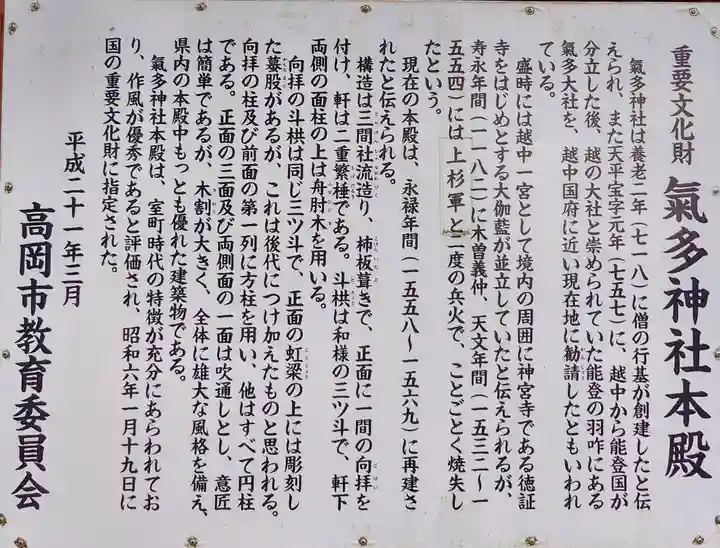 重要文化財
氣多神社本殿
氣多神社は養老二年（七一八）に僧の行基が創建したと伝
えられ、また天平宝字元年（七五七）に、越中から能登国が
分立した後、越の大社と崇められていた能登の羽咋にある
氣多大社を、越中国府に近い現在地に勧請したともいわれ
ている。
盛時には越中一宮として境内の周囲に神宮寺である徳証
寺をはじめとする大伽藍が並立していたと伝えられるが、
寿永年間（一一八二）に木曽義仲、天文年間（一五三二〜一
五五四）には上杉軍と二度の兵火で、ことごとく焼失し
たという。
現在の本殿は、永禄年間（一五五八〜一五六九）に再建さ
れたと伝えられる。
構造は三間社流造り、杮板葺きで、正面に一間の向拝を
付け、軒は二重繁棰である。斗栱は和様の三ツ斗で、軒下
両側の面柱の上は舟肘木を用いる。
向拝の斗栱は同じ三ツ斗で、正面の虹梁の上には彫刻し
た蟇股があるが、これは後代につけ加えたものと思われる。
向拝の柱及び前面の第一列に方柱を用い、他はすべて円柱
である。正面の三面及び両側面の一面は吹通しとし、意匠
は簡単であるが、木割が大きく、全体に雄大な風格を備え、
県内の本殿中もっとも優れた建築物である。
氣多神社本殿は、室町時代の特徴が充分にあらわれてお
り、作風が優秀であると評価され、昭和六年一月十九日に
国の重要文化財に指定された。
平成二十一年三月
高岡市教育委員会